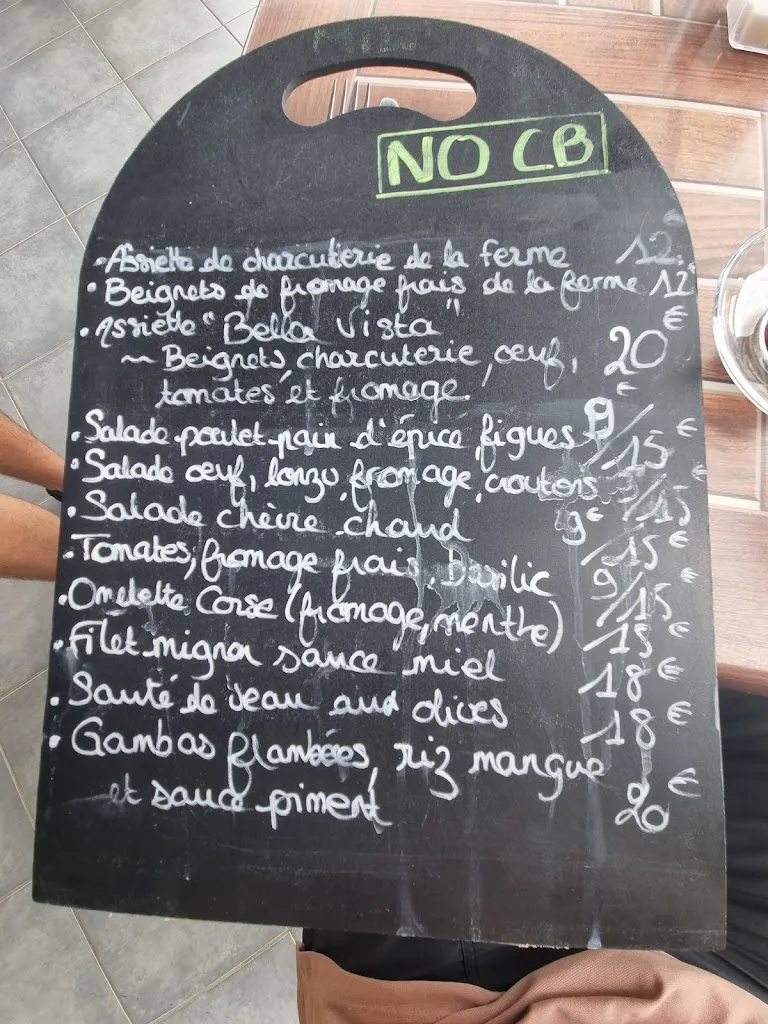 NO CB
• Assiette de charcuterie de la ferme 12€
• Beignets de fromage frais de la ferme 12
• Assiette "Bella Vista" €
~ Beignets, charcuterie, œuf, 20
tomates et fromage. €
• Salade poulet pain d'épice, figues 9/15€
• Salade œuf, lonzu, fromage, croutons /15
• Salade chèvre chaud 9€/15€
• Tomates, fromage frais, Basilic 9/15€
• Omelette Corse (fromage, menthe) 15€
• Filet mignon sauce miel 18€
• Sauté de veau aux olives 18€
• Gambas flambées, riz mangue €
et sauce piment 20